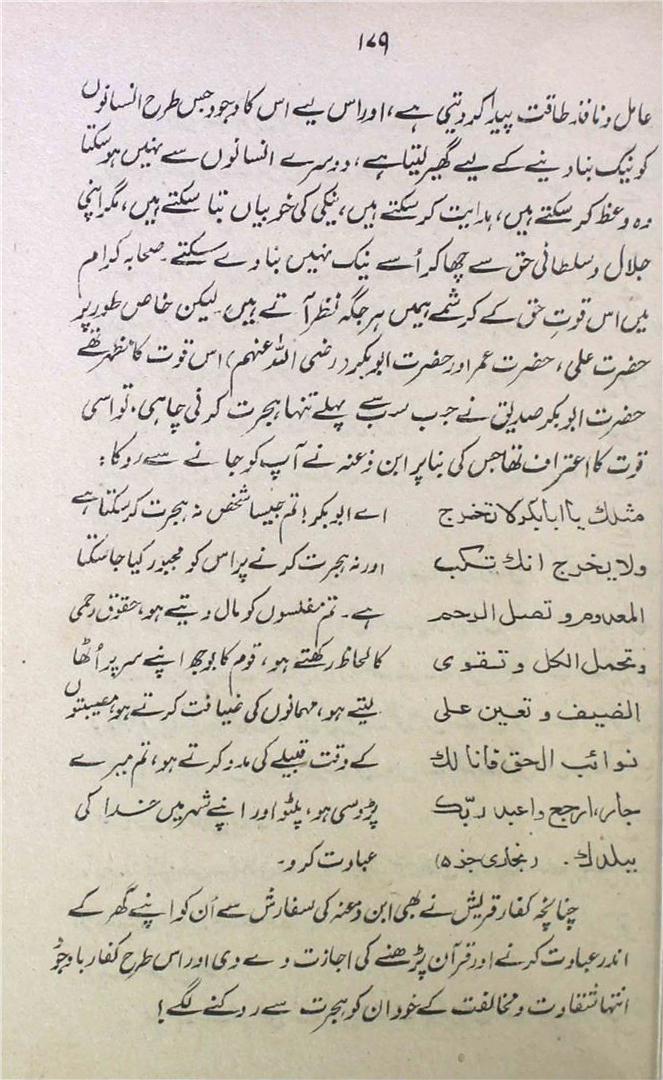 ۱۷۹
عامل و نافذ طاقت پیدا کر دیتی ہے، اور اس لیے اس کا وجود جس طرح انسانوں
کو نیک بنا دینے کے لیے گھیر لیتا ہے، دوسرے انسانوں سے نہیں ہو سکتا
وہ وعظ کر سکتے ہیں، ہدایت کر سکتے ہیں، نیکی کی خوبیاں بتا سکتے ہیں، مگر اپنی
جلال و سلطانی حق سے چھا کر اُسے نیک نہیں بنا دے سکتے۔ صحابہ کرام
میں اس قوتِ حق کے کرشمے ہمیں ہر جگہ نظر آتے ہیں۔ لیکن خاص طور پر
حضرت علی، حضرت عمر اور حضرت ابوبکر (رضی اللہ عنہم) اس قوت کا مظہر تھے
حضرت ابوبکر صدیق نے جب سب سے پہلے تنہا ہجرت کرنی چاہی۔ تو اسی
قوت کا اعتراف تھا جس کی بنا پر ابن دغنہ نے آپ کو جانے سے روکا:
مثلك یا ابابکر لا تخرج اے ابوبکر! تم جیسا شخص نہ ہجرت کر سکتا ہے
ولا یخرج انك تکب اور نہ ہجرت کرنے پر اس کو مجبور کیا جا سکتا
المعدوم و تصل الرحم ہے۔ تم مفلسوں کو مال دیتے ہو، حقوق رحمی
وتحمل الکل و تقوی کا لحاظ رکھتے ہو، قوم کا بوجھ اپنے سر پر اُٹھا
الضیف و تعین علی لیتے ہو، مہمانوں کی ضیافت کرتے ہو، مصیبتوں
نوائب الحق فانا لك کے وقت قبیلے کی مدد کرتے ہو، تم میرے
جار، ارجع واعبد ربّك پڑوسی ہو، پلٹو اور اپنے شہر میں خدا کی
ببلدك۔ (بخاری جز ۵) عبادت کرو۔
چنانچہ کفار قریش نے بھی ابن دغنہ کی سفارش سے اُن کو اپنے گھر کے
اندر عبادت کرنے اور قرآن پڑھنے کی اجازت دے دی اور اس طرح کفار باوجود
انتہا شقاوت و مخالفت کے خود ان کو ہجرت سے روکنے لگے!